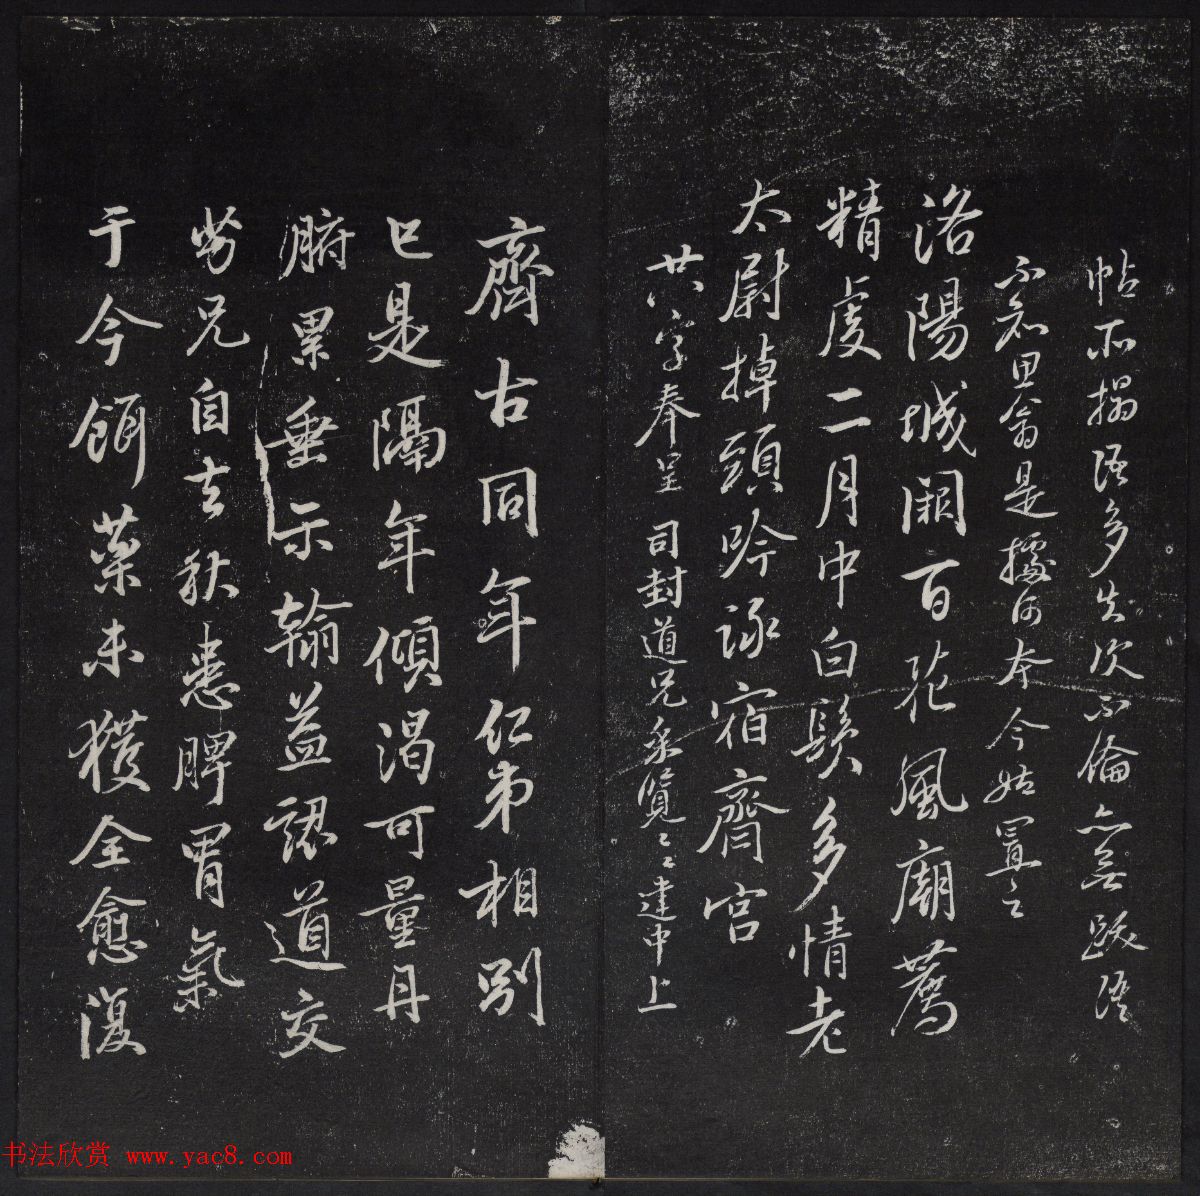 帖所搨語多失次不倫亦無跋語
不知思翁是據何本今姑置之
洛陽城闕百花風廟薦
精虔二月中白鬚多情老
太尉掉頭吟詠宿齋宮
廿八字奉呈 司封道兄 垂覽〻建中上
齊古同年仁弟相別
已是隔年傾渴可量丹
腑累垂示翰益認道交
勞兄自去秋患脾胃氣
于今餌藥未獲全愈復
书法欣赏 www.yac8.com